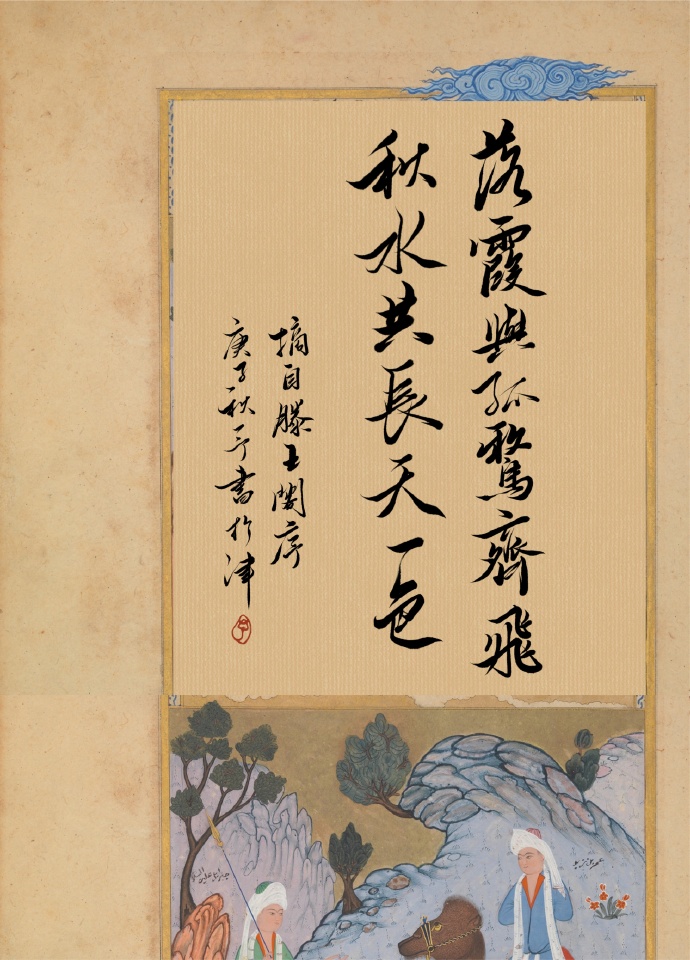 落霞與孤鶩齊飛
秋水共長天一色
摘自滕王閣序
庚子秋予書於津